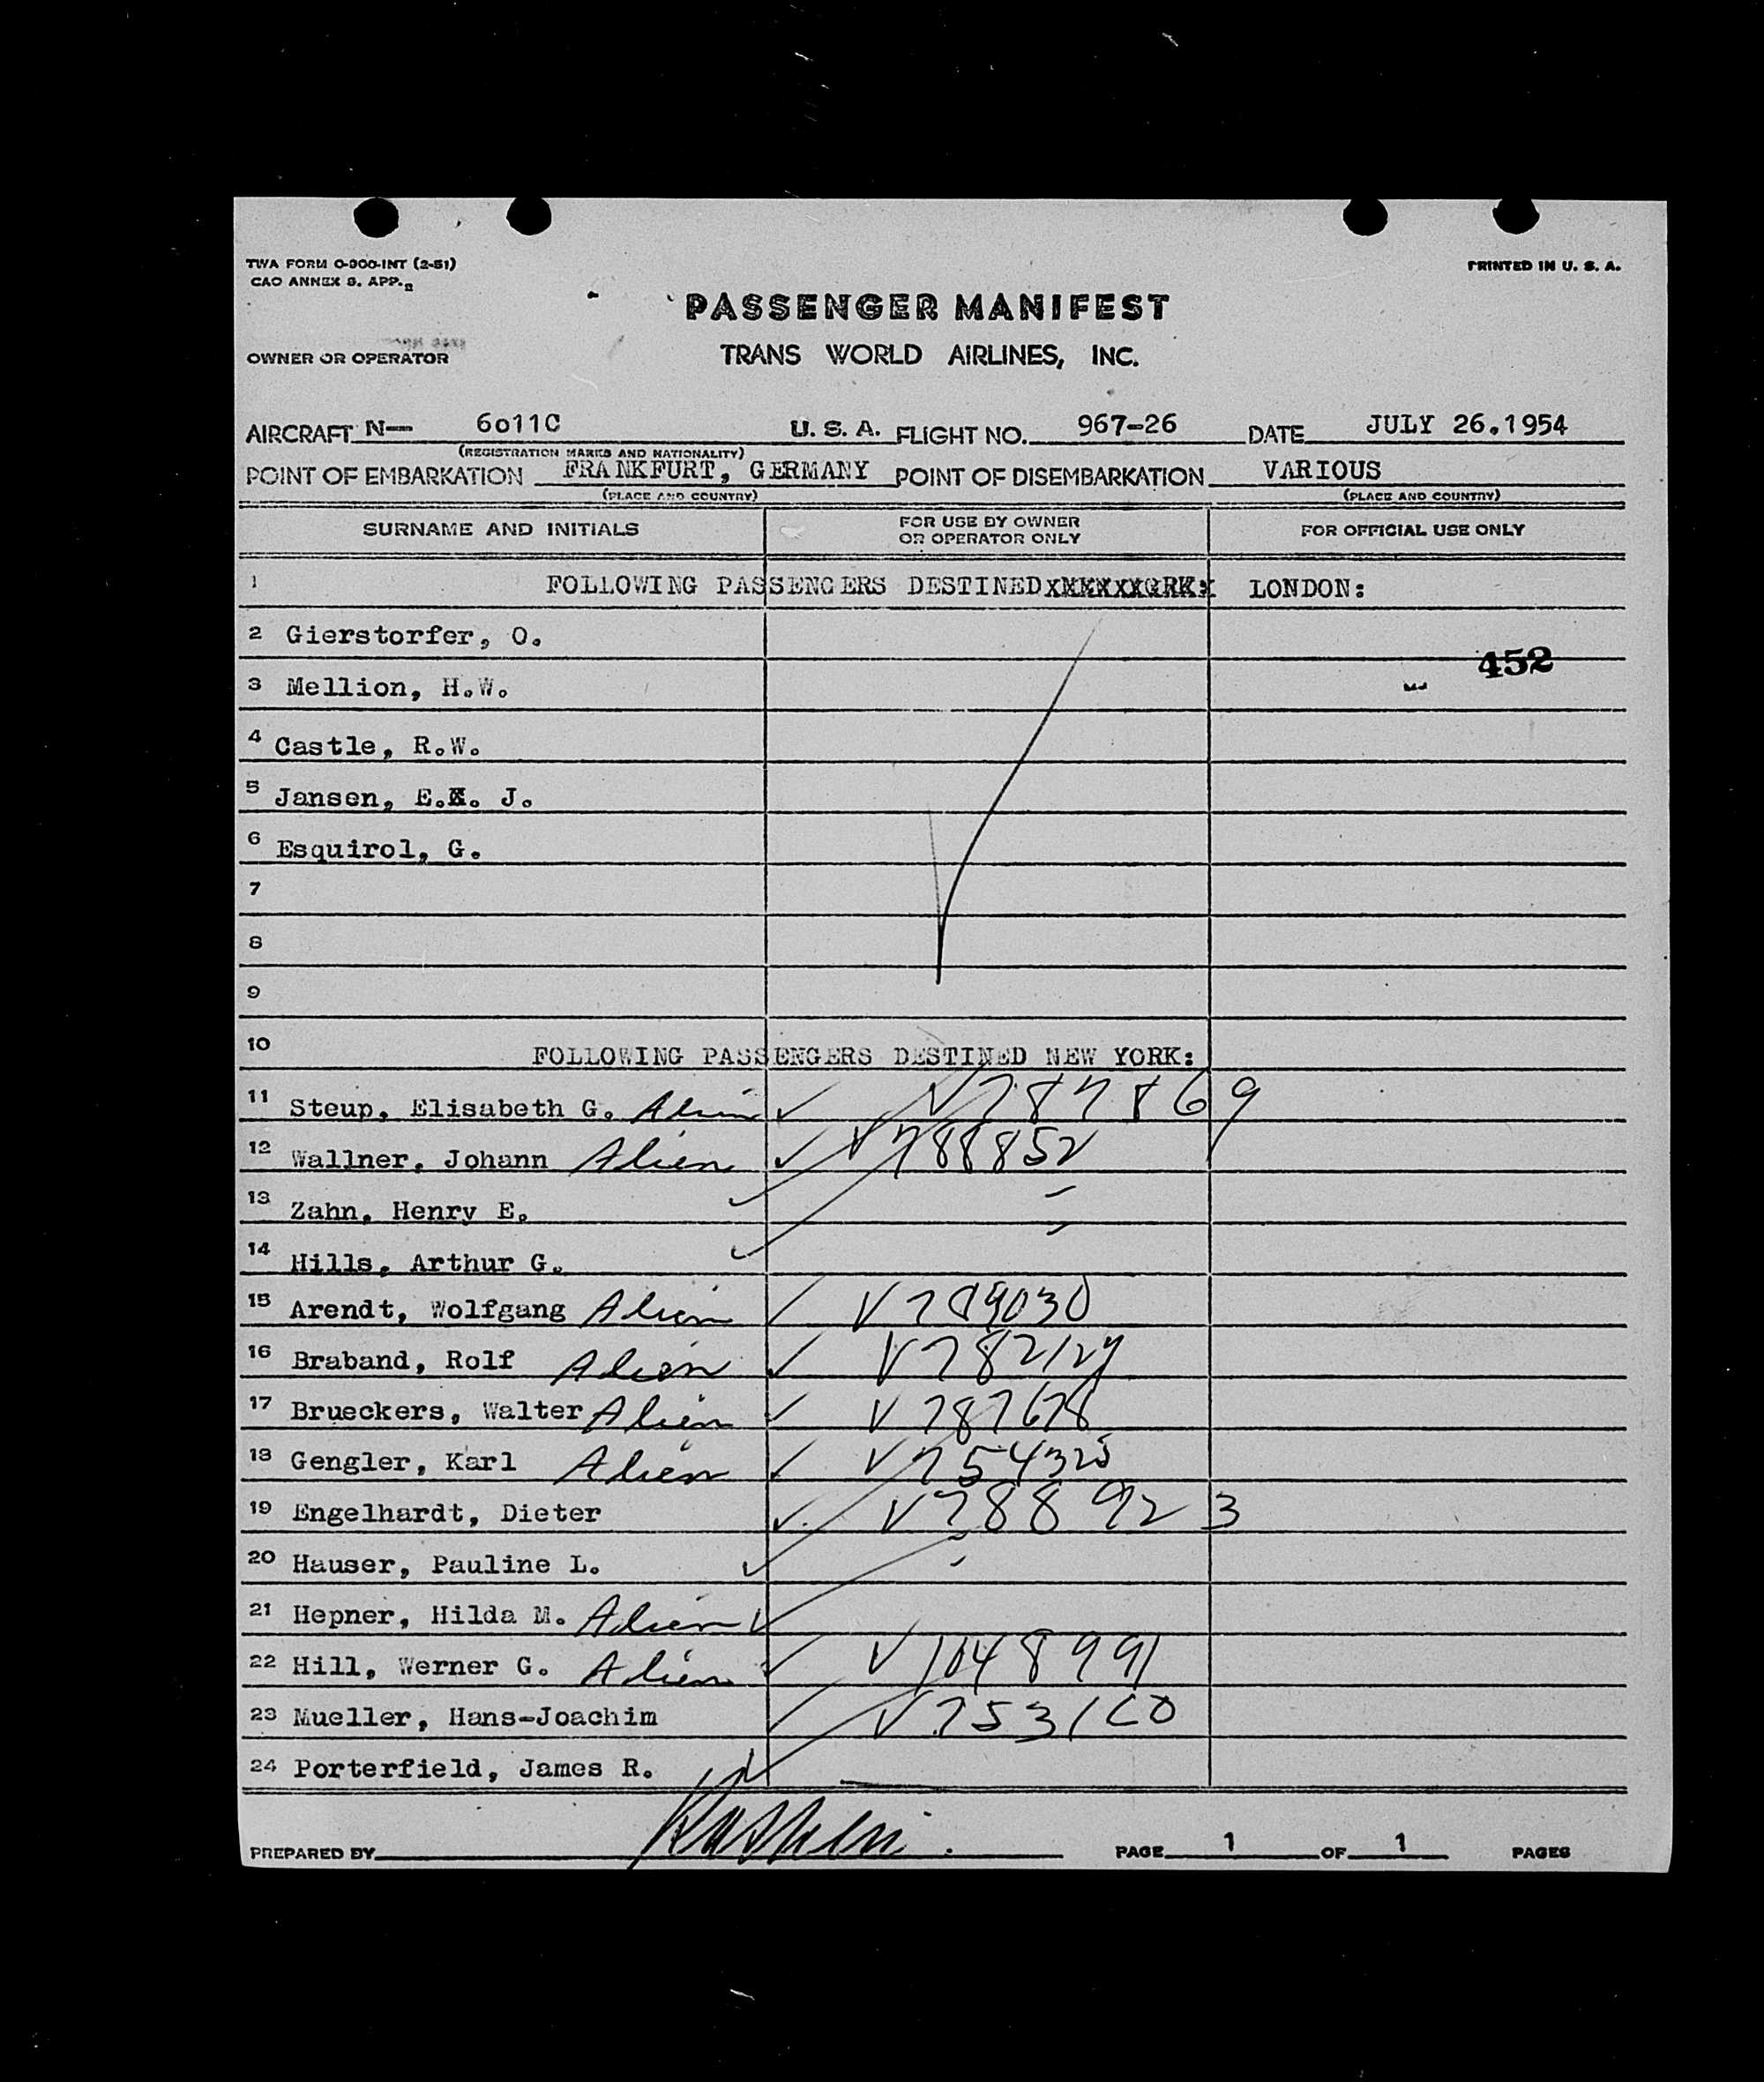 TWA FORM O-300-INT (2-51)
CAO ANNEX 9. APP.
PRINTED IN U. S. A.
PASSENGER MANIFEST
OWNER OR OPERATOR TRANS WORLD AIRLINES, INC.
AIRCRAFT N— 6o11C U. S. A. FLIGHT NO. 967-26 DATE JULY 26.1954
(REGISTRATION MARKS AND NATIONALITY)
POINT OF EMBARKATION FRANKFURT, GERMANY POINT OF DISEMBARKATION VARIOUS
(PLACE AND COUNTRY) (PLACE AND COUNTRY)
SURNAME AND INITIALS FOR USE BY OWNER OR OPERATOR ONLY FOR OFFICIAL USE ONLY
1 FOLLOWING PASSENGERS DESTINED LONDON:
2 Gierstorfer, O.
452
3 Mellion, H.W.
4 Castle, R.W.
5 Jansen, E. J.
6 Esquirol, G.
7
8
9
10 FOLLOWING PASSENGERS DESTINED NEW YORK:
11 Steup, Elisabeth G. Alien ✓ V787869
12 Wallner, Johann Alien ✓ V788852
13 Zahn, Henry E. ✓
14 Hills, Arthur G. ✓
15 Arendt, Wolfgang Alien ✓ V789030
16 Braband, Rolf Alien ✓
17 Brueckers, Walter Alien ✓ V787678
18 Gengler, Karl Alien ✓ V754325
19 Engelhardt, Dieter ✓ V788923
20 Hauser, Pauline L. ✓
21 Hepner, Hilda M. Alien ✓
22 Hill, Werner G. Alien ✓ V1048991
23 Mueller, Hans-Joachim ✓
24 Porterfield, James R. ✓
PREPARED BY PAGE 1 OF 1 PAGES